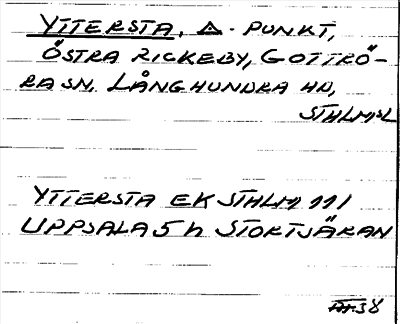 YTTERSTA, △-PUNKT,
ÖSTRA RICKEBY, GOTTRÖ-
RA SN. LÅNGHUNDRA HD,
STHLMSL
YTTERSTA EK STHLM 111
UPPSALA 5 h STORTJÄRAN
38